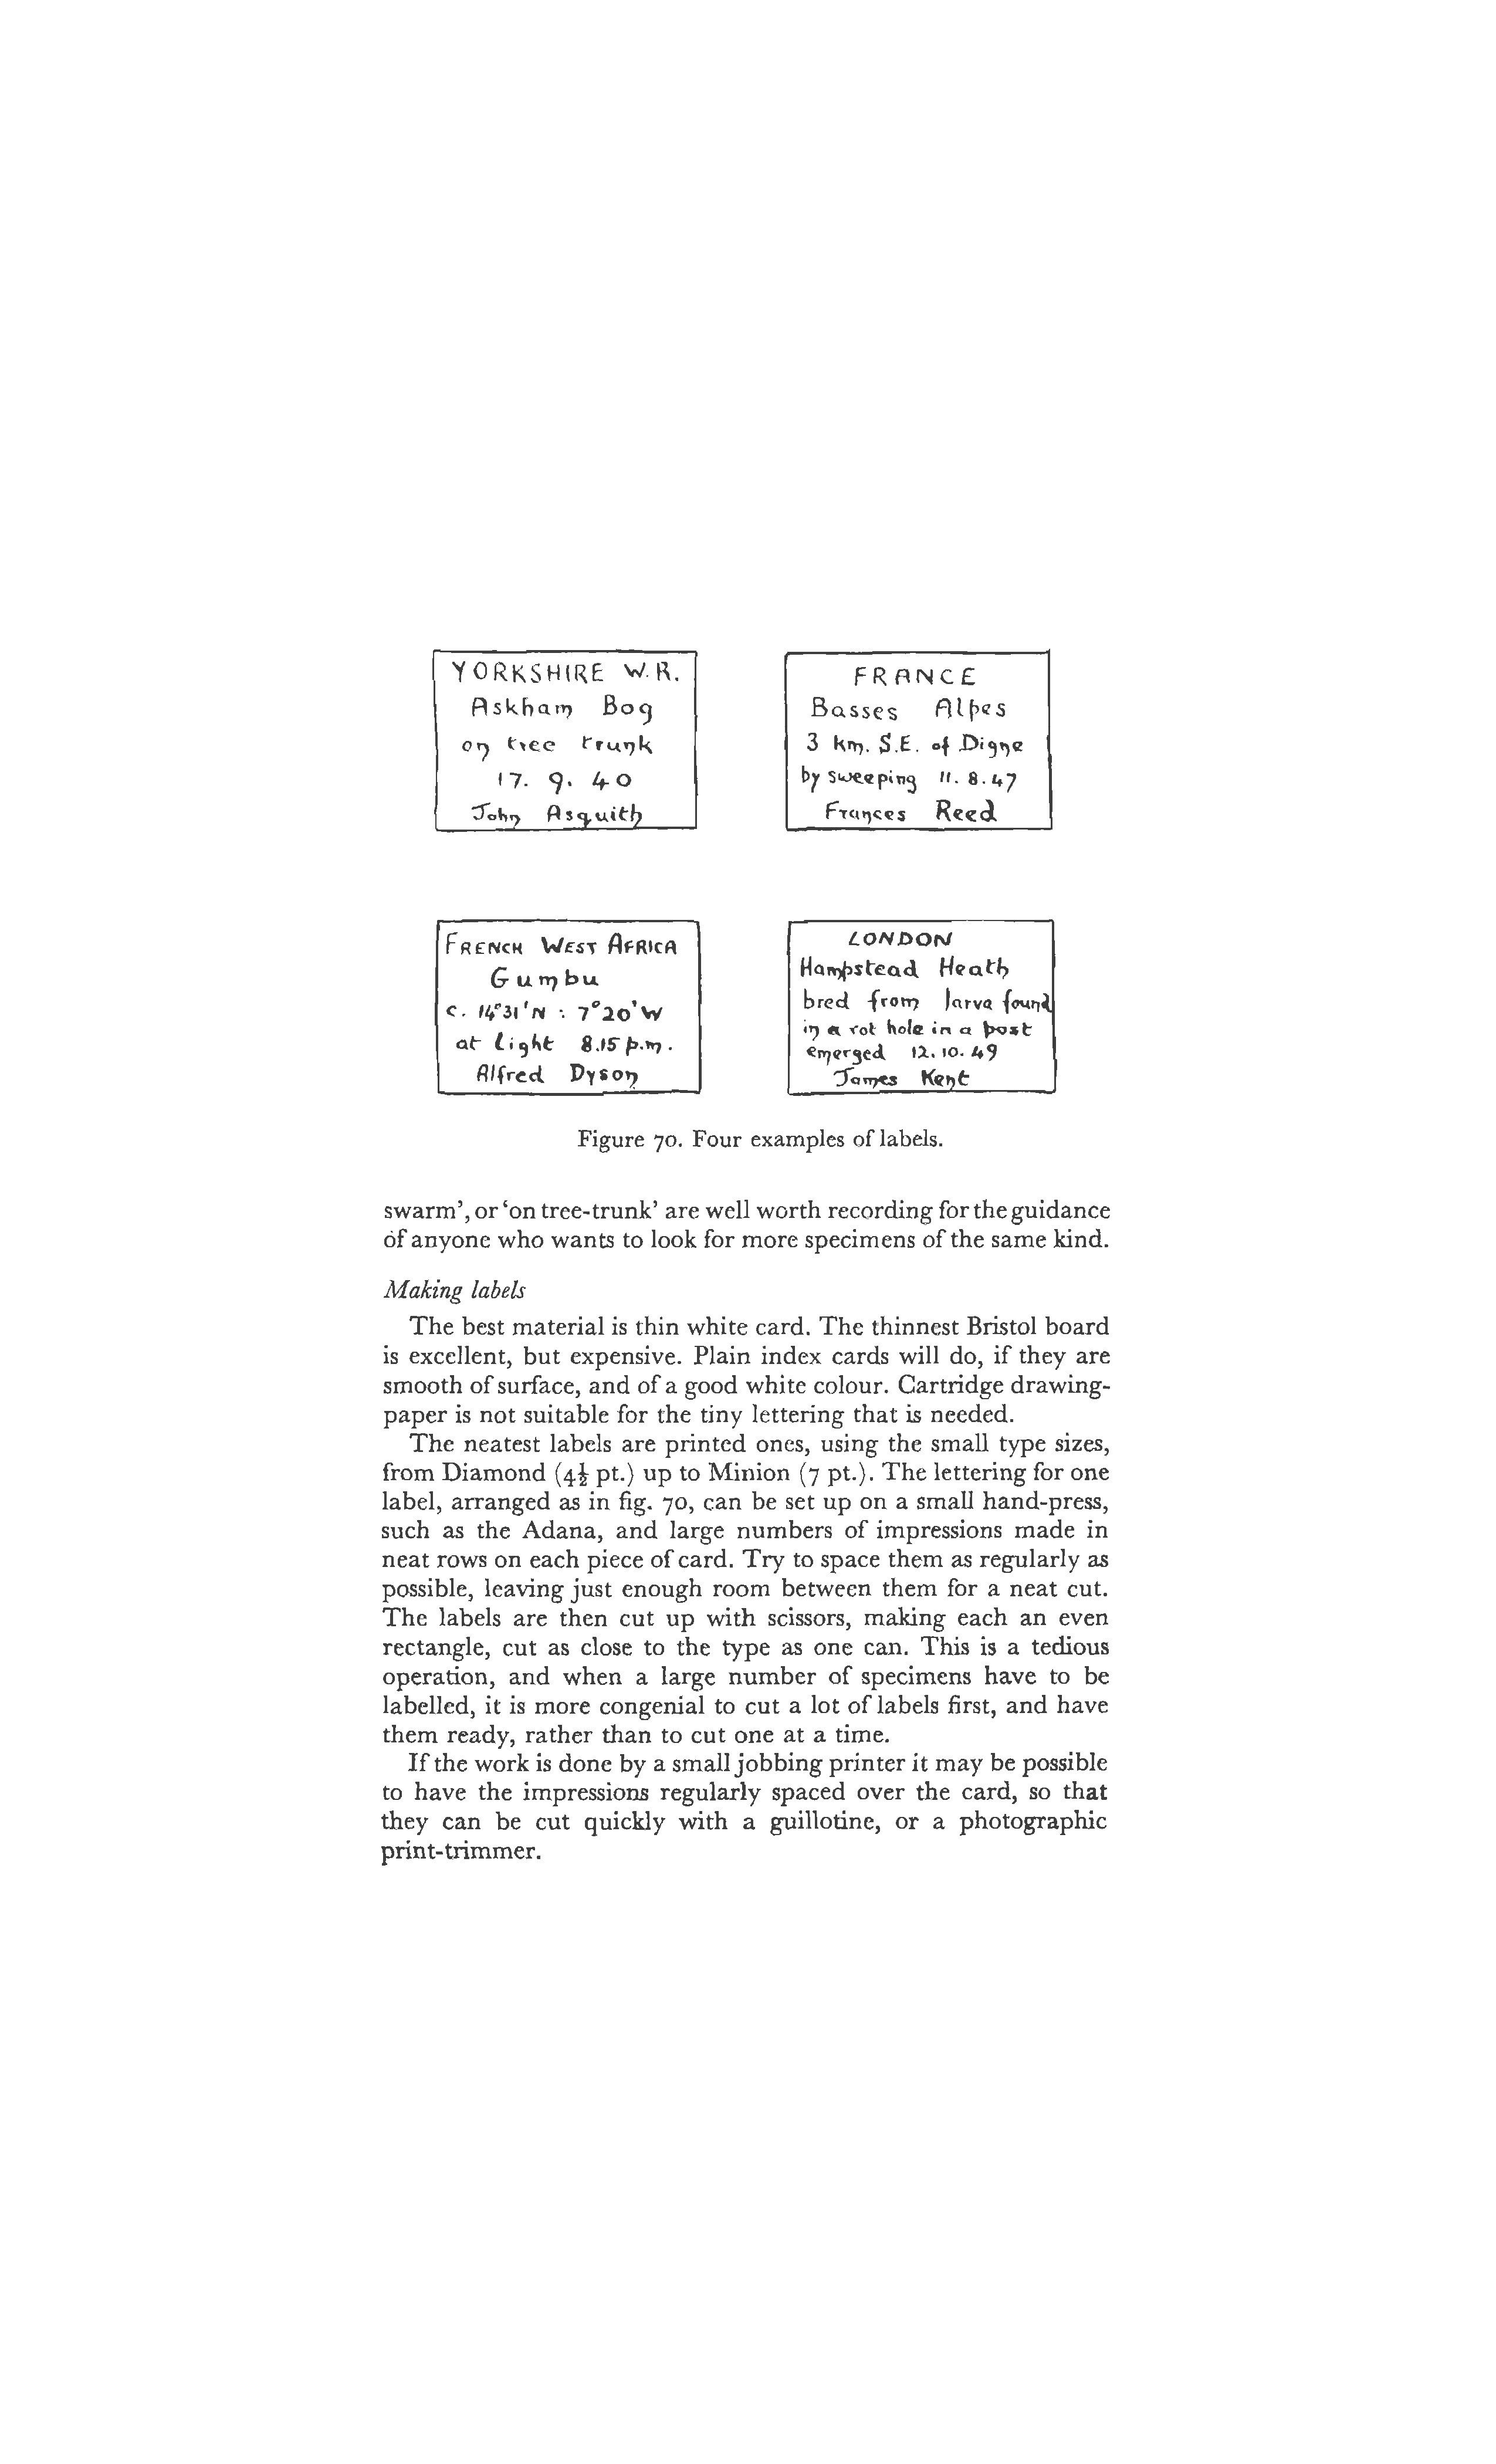 YORKSHIRE W.R.
Askham Bog
on tree trunk
17. 9. 40
John Asquith
FRANCE
Basses Alpes
3 km. S.E. of Digne
by sweeping 11. 8. 47
Frances Reed
FRENCH WEST AFRICA
Gumbu
c. 14°31'N : 7°20'W
at light 8.15 p.m.
Alfred Dyson
LONDON
Hampstead Heath
bred from larva found
in a rot hole in a post
emerged 12. 10. 49
James Kent
Figure 70. Four examples of labels.
swarm', or 'on tree-trunk' are well worth recording for the guidance
of anyone who wants to look for more specimens of the same kind.
Making labels
The best material is thin white card. The thinnest Bristol board
is excellent, but expensive. Plain index cards will do, if they are
smooth of surface, and of a good white colour. Cartridge drawing-
paper is not suitable for the tiny lettering that is needed.
The neatest labels are printed ones, using the small type sizes,
from Diamond (4½ pt.) up to Minion (7 pt.). The lettering for one
label, arranged as in fig. 70, can be set up on a small hand-press,
such as the Adana, and large numbers of impressions made in
neat rows on each piece of card. Try to space them as regularly as
possible, leaving just enough room between them for a neat cut.
The labels are then cut up with scissors, making each an even
rectangle, cut as close to the type as one can. This is a tedious
operation, and when a large number of specimens have to be
labelled, it is more congenial to cut a lot of labels first, and have
them ready, rather than to cut one at a time.
If the work is done by a small jobbing printer it may be possible
to have the impressions regularly spaced over the card, so that
they can be cut quickly with a guillotine, or a photographic
print-trimmer.